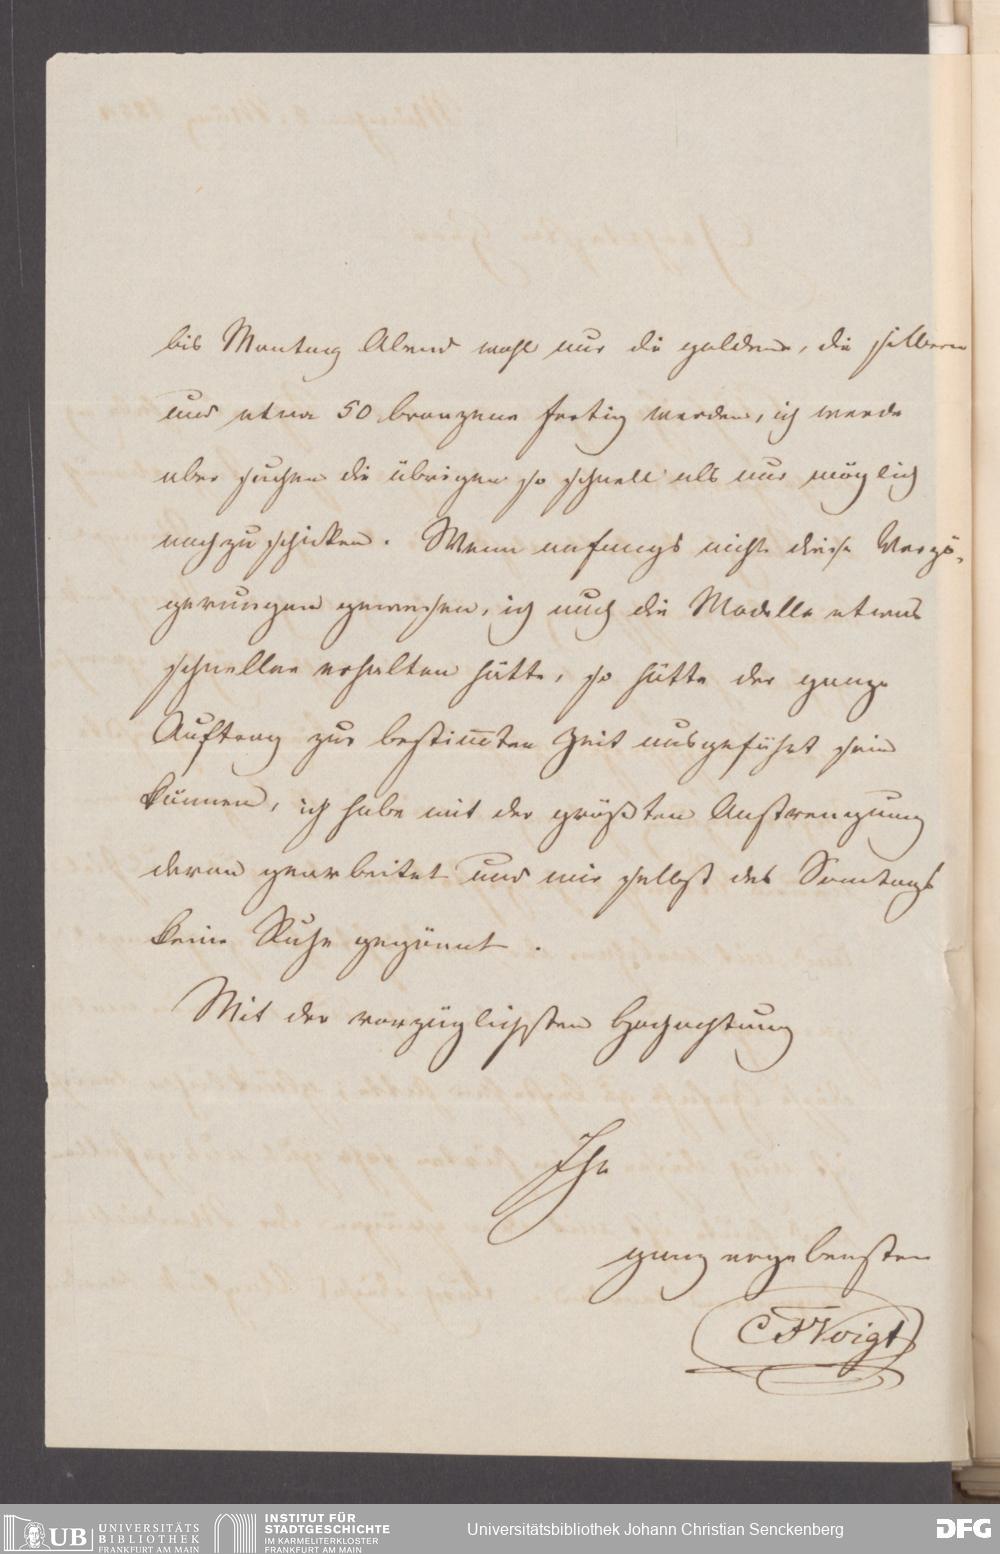 bis Montag Abend wohl nur die goldene, die silberne
und etwa 50 bronzene fertig werden, ich werde
aber suchen die übrigen so schnell als nur möglich
nachzuschicken. Wenn anfangs nicht diese Verzö-
gerungen gewesen, ich auch die Modelle etwas
schneller erhalten hätte, so hätte der ganze
Auftrag zur bestimten Zeit ausgeführt sein
können, ich habe mit der größten Anstrengung
daran gearbeitet und mir selbst des Sontags
keine Ruhe gegönnt.
Mit der vorzüglichsten Hochachtung
Ihr
ganz ergebenster
C F Voigt
UB UNIVERSITÄTS
BIBLIOTHEK
FRANKFURT AM MAIN
INSTITUT FÜR
STADTGESCHICHTE
IM KARMELITERKLOSTER
FRANKFURT AM MAIN
Universitätsbibliothek Johann Christian Senckenberg
DFG